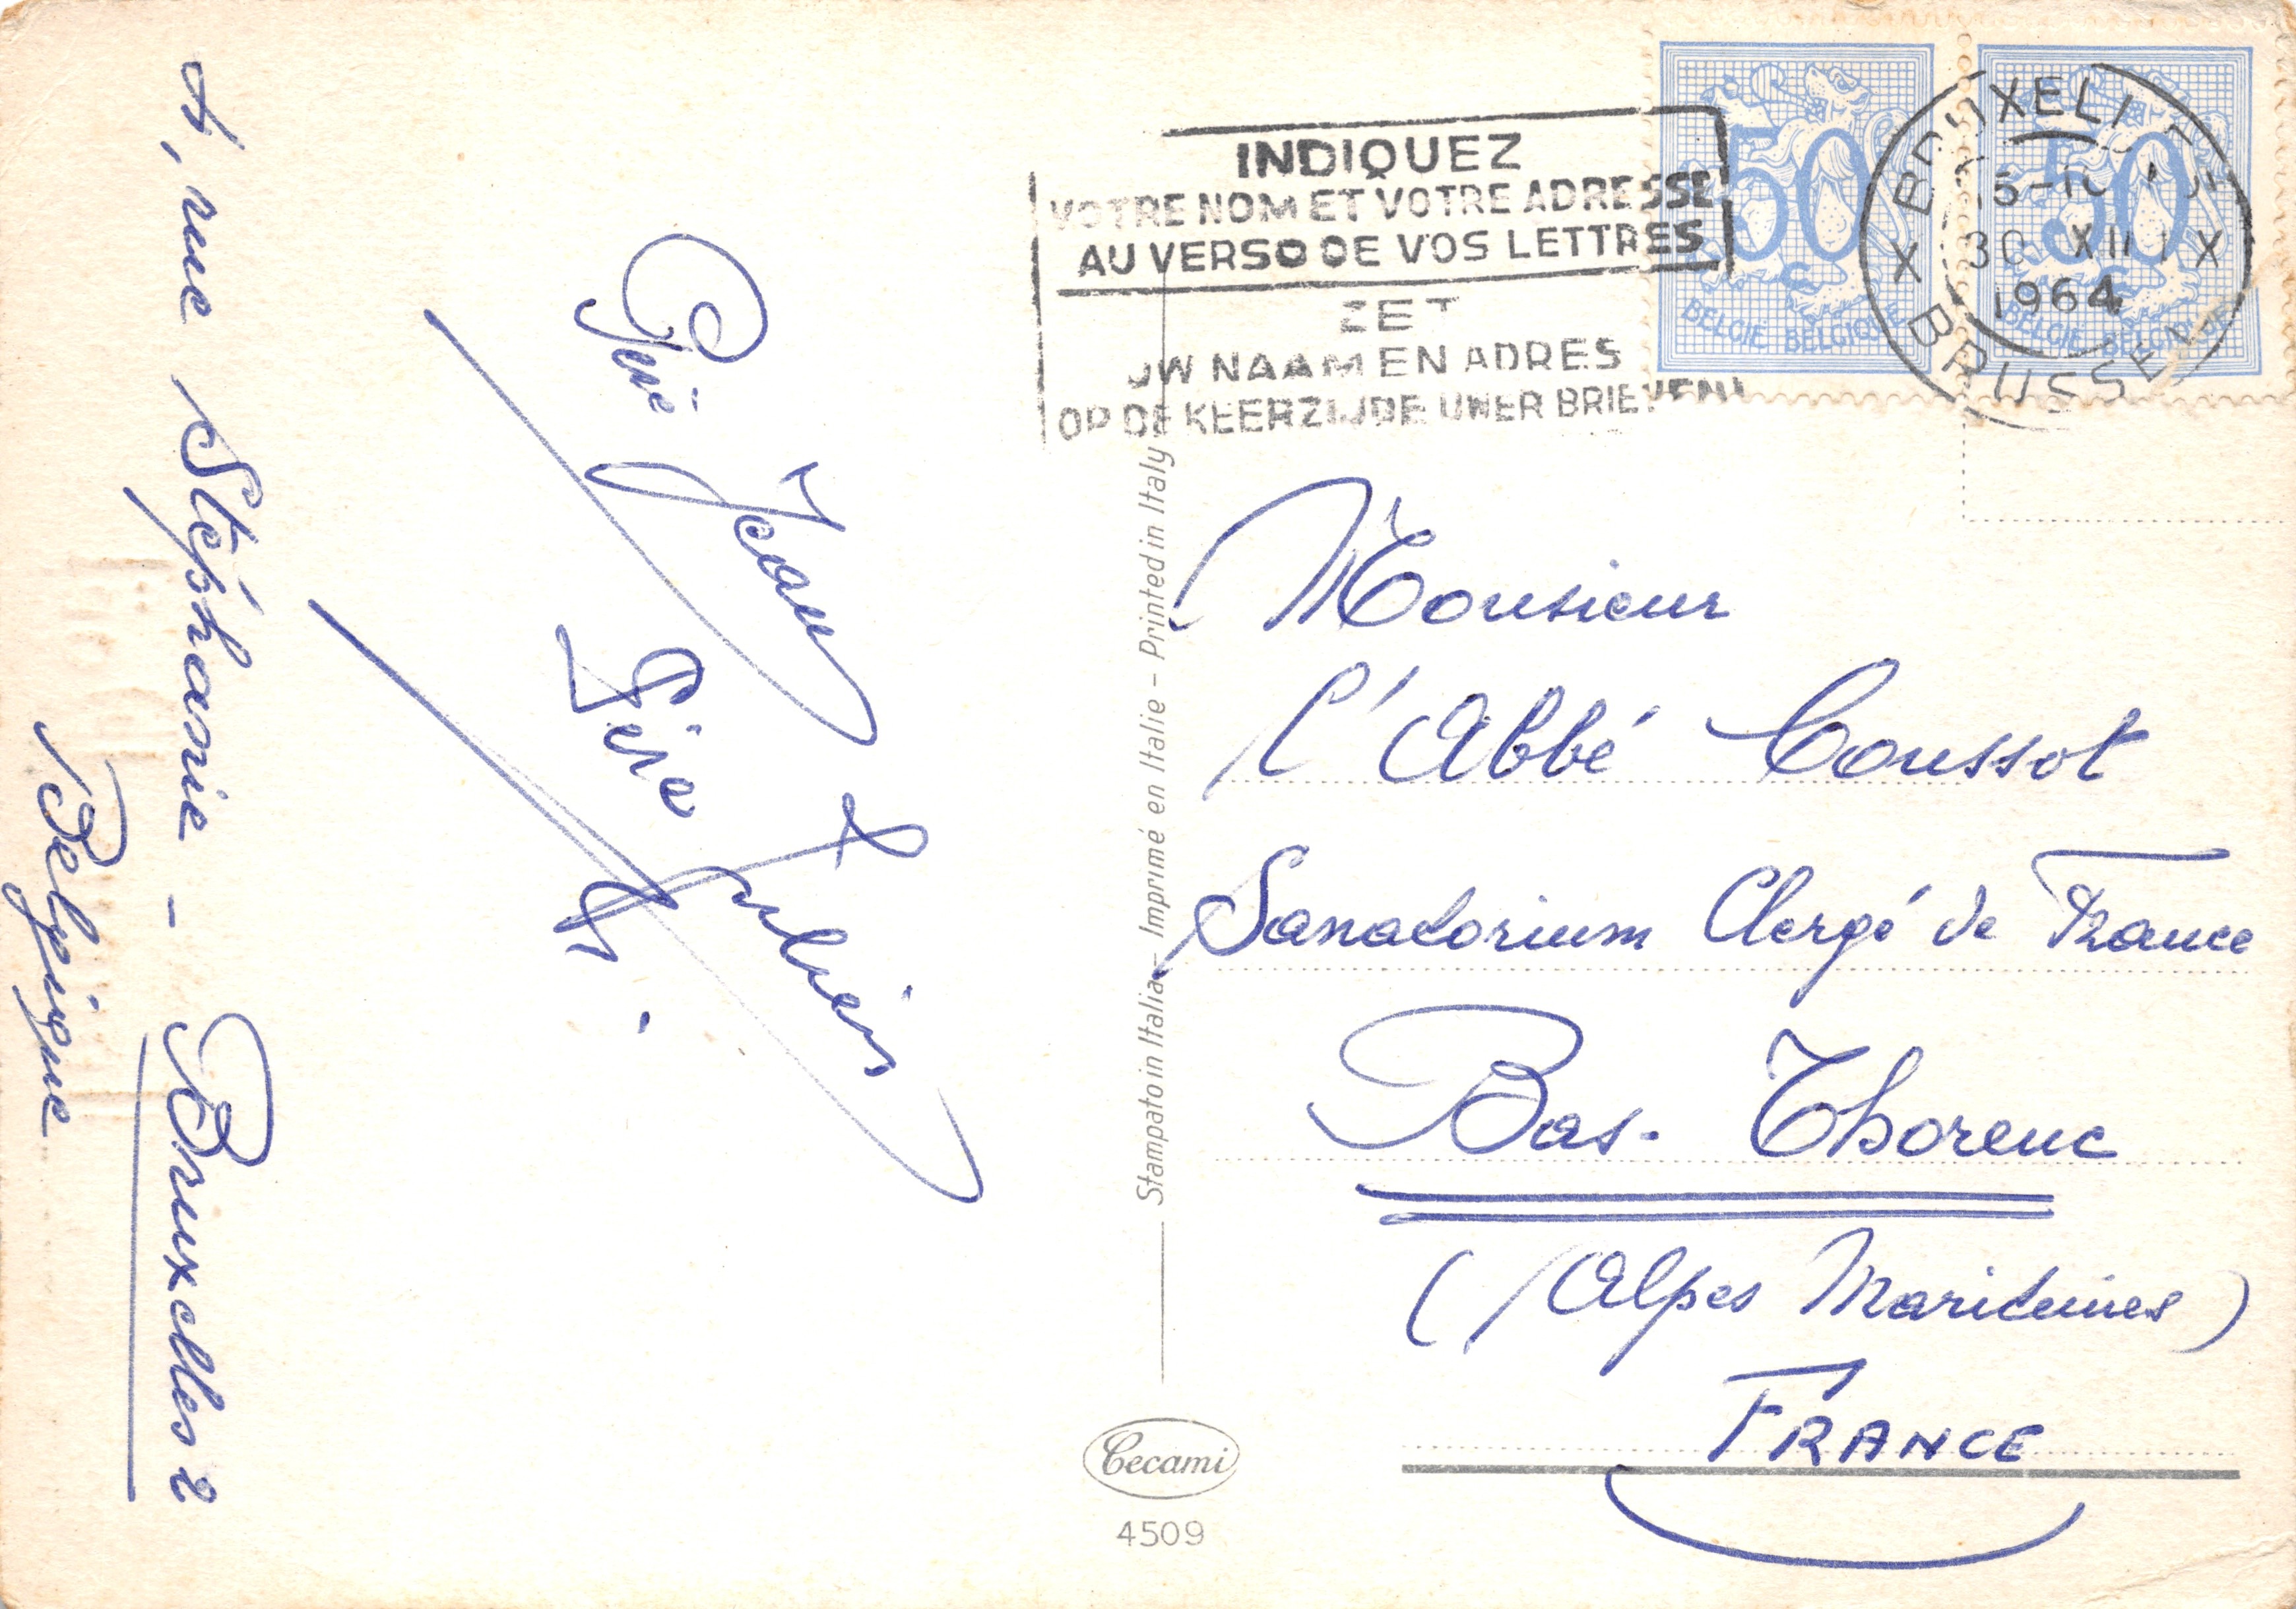 rue Stéphanie - Bruxelles 2
Belgique
Jean
INDIQUEZ
VOTRE NOM ET VOTRE ADRESSE
AU VERSO DE VOS LETTRES
ZET
UW NAAM EN ADRES
OP DE KEERZIJDE UWER BRIEVEN
50 c
BELGIË BELGIQUE
50 c
BELGIË BELGIQUE
X BRUXELLES X BRUSSEL
30 XII
1964
Monsieur
l'Abbé Coussot
Sanatorium Clergé de France
Bas-Thorenc
(Alpes Maritimes)
FRANCE
Stampato in Italia - Imprimé en Italie - Printed in Italy
Cecami
4509